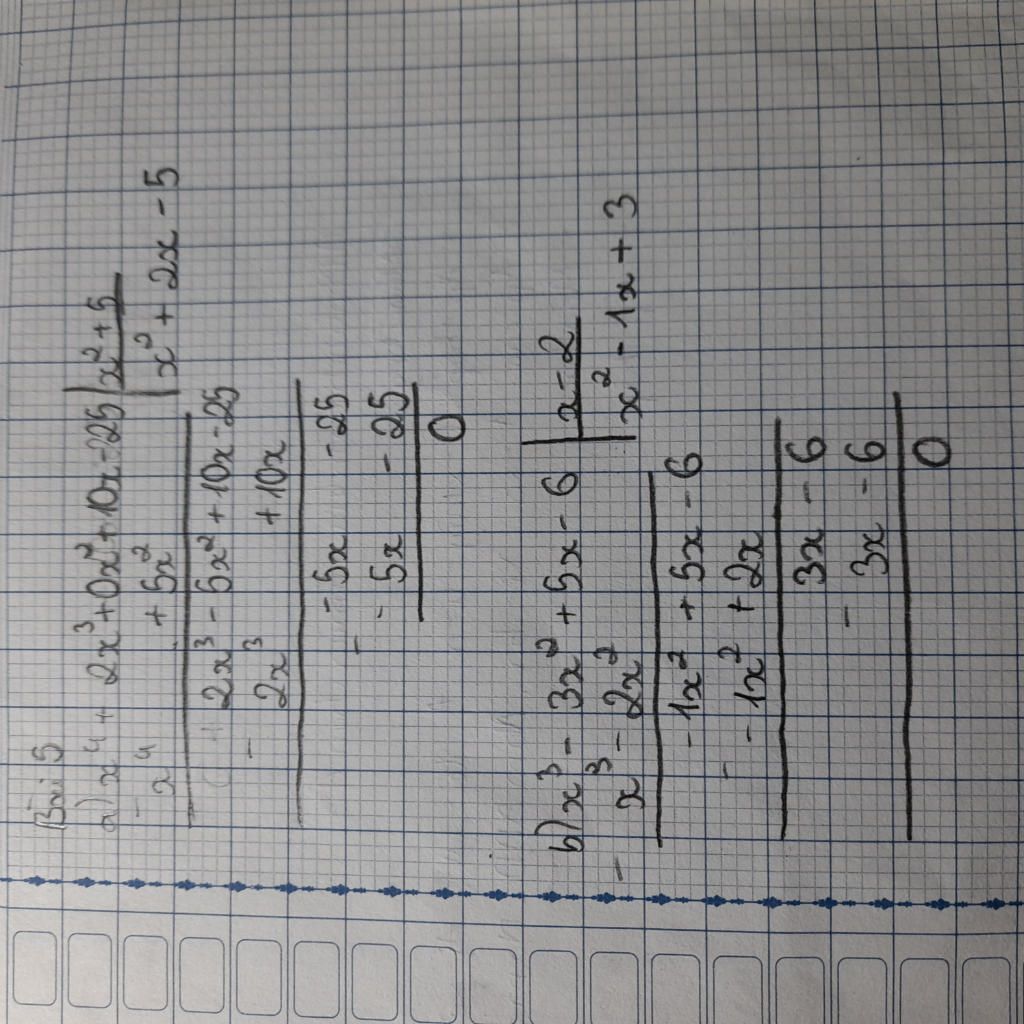 Bài 5
a) x⁴ + 2x³ + 0x² + 10x - 25 | x² + 5
- x⁴ + 5x² | x² + 2x - 5
2x³ - 5x² + 10x - 25
- 2x³ + 10x
- 5x - 25
- - 5x - 25
0
b) x³ - 3x² + 5x - 6 | x - 2
- x³ - 2x² | x² - 1x + 3
- 1x² + 5x - 6
- - 1x² + 2x
3x - 6
- 3x - 6
0